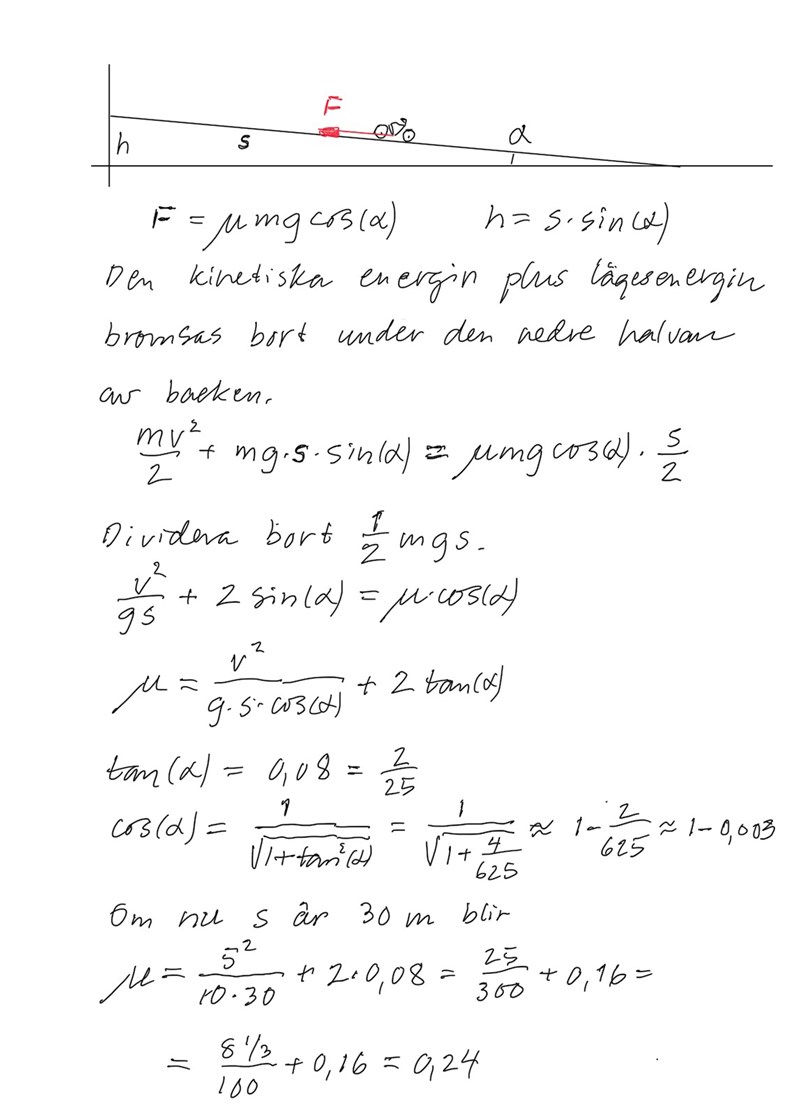 F
h
s
α
F = μmgcos(α) h = s·sin(α)
Den kinetiska energin plus lägesenergin
bromsas bort under den nedre halvan
av backen.
mv²/2 + mg·s·sin(α) = μmgcos(α)·s/2
Dividera bort 1/2 mgs.
v²/gs + 2 sin(α) = μ·cos(α)
μ = v²/(g·s·cos(α)) + 2 tan(α)
tan(α) = 0,08 = 2/25
cos(α) = 1/√(1+tan²(α)) = 1/√(1+4/625) ≈ 1-2/625 ≈ 1-0,003
Om nu s är 30 m blir
μ = 5²/(10·30) + 2·0,08 = 25/300 + 0,16 =
= 8 1/3/100 + 0,16 = 0,24